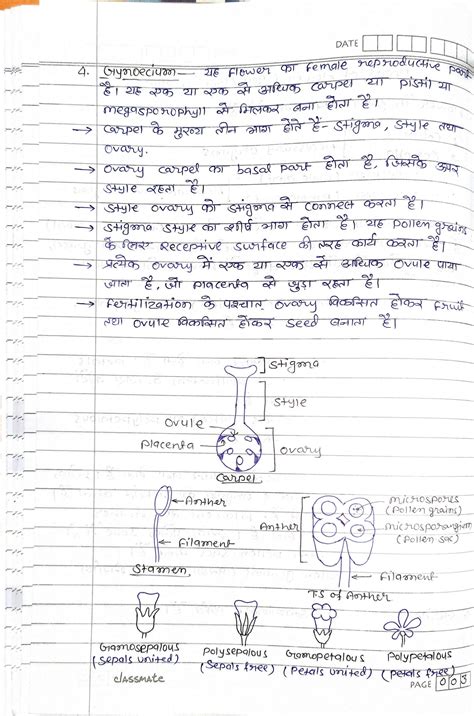 DATE
4. Gynoecium — यह Flower का Female reproductive part
है। यह एक या एक से अधिक carpel या pistil या
megasporophyll से मिलकर बना होता है।
→ carpel के मुख्य तीन भाग होते हैं- stigma, style तथा
ovary.
→ ovary carpel का basal part होता है, जिसके ऊपर
style रहता है।
→ style ovary को stigma से connect करता है।
→ stigma style का शीर्ष भाग होता है। यह pollen grains
के लिए Receptive surface की तरह कार्य करता है।
→ प्रत्येक ovary में एक या एक से अधिक ovule पाया
जाता है, जो placenta से जुड़ा रहता है।
→ Fertilization के पश्चात् ovary विकसित होकर fruit
तथा ovule विकसित होकर seed बनाता है।
stigma
style
ovule
placenta
ovary
carpel
Anther
Filament
Stamen
Anther
microspores
(pollen grains)
microsporangium
(pollen sac)
Filament
T.S of Anther
Gamosepalous
(sepals united)
polysepalous
(sepals free)
Gramopetalous
(petals united)
polypetalous
(petals free)
classmate
PAGE 003